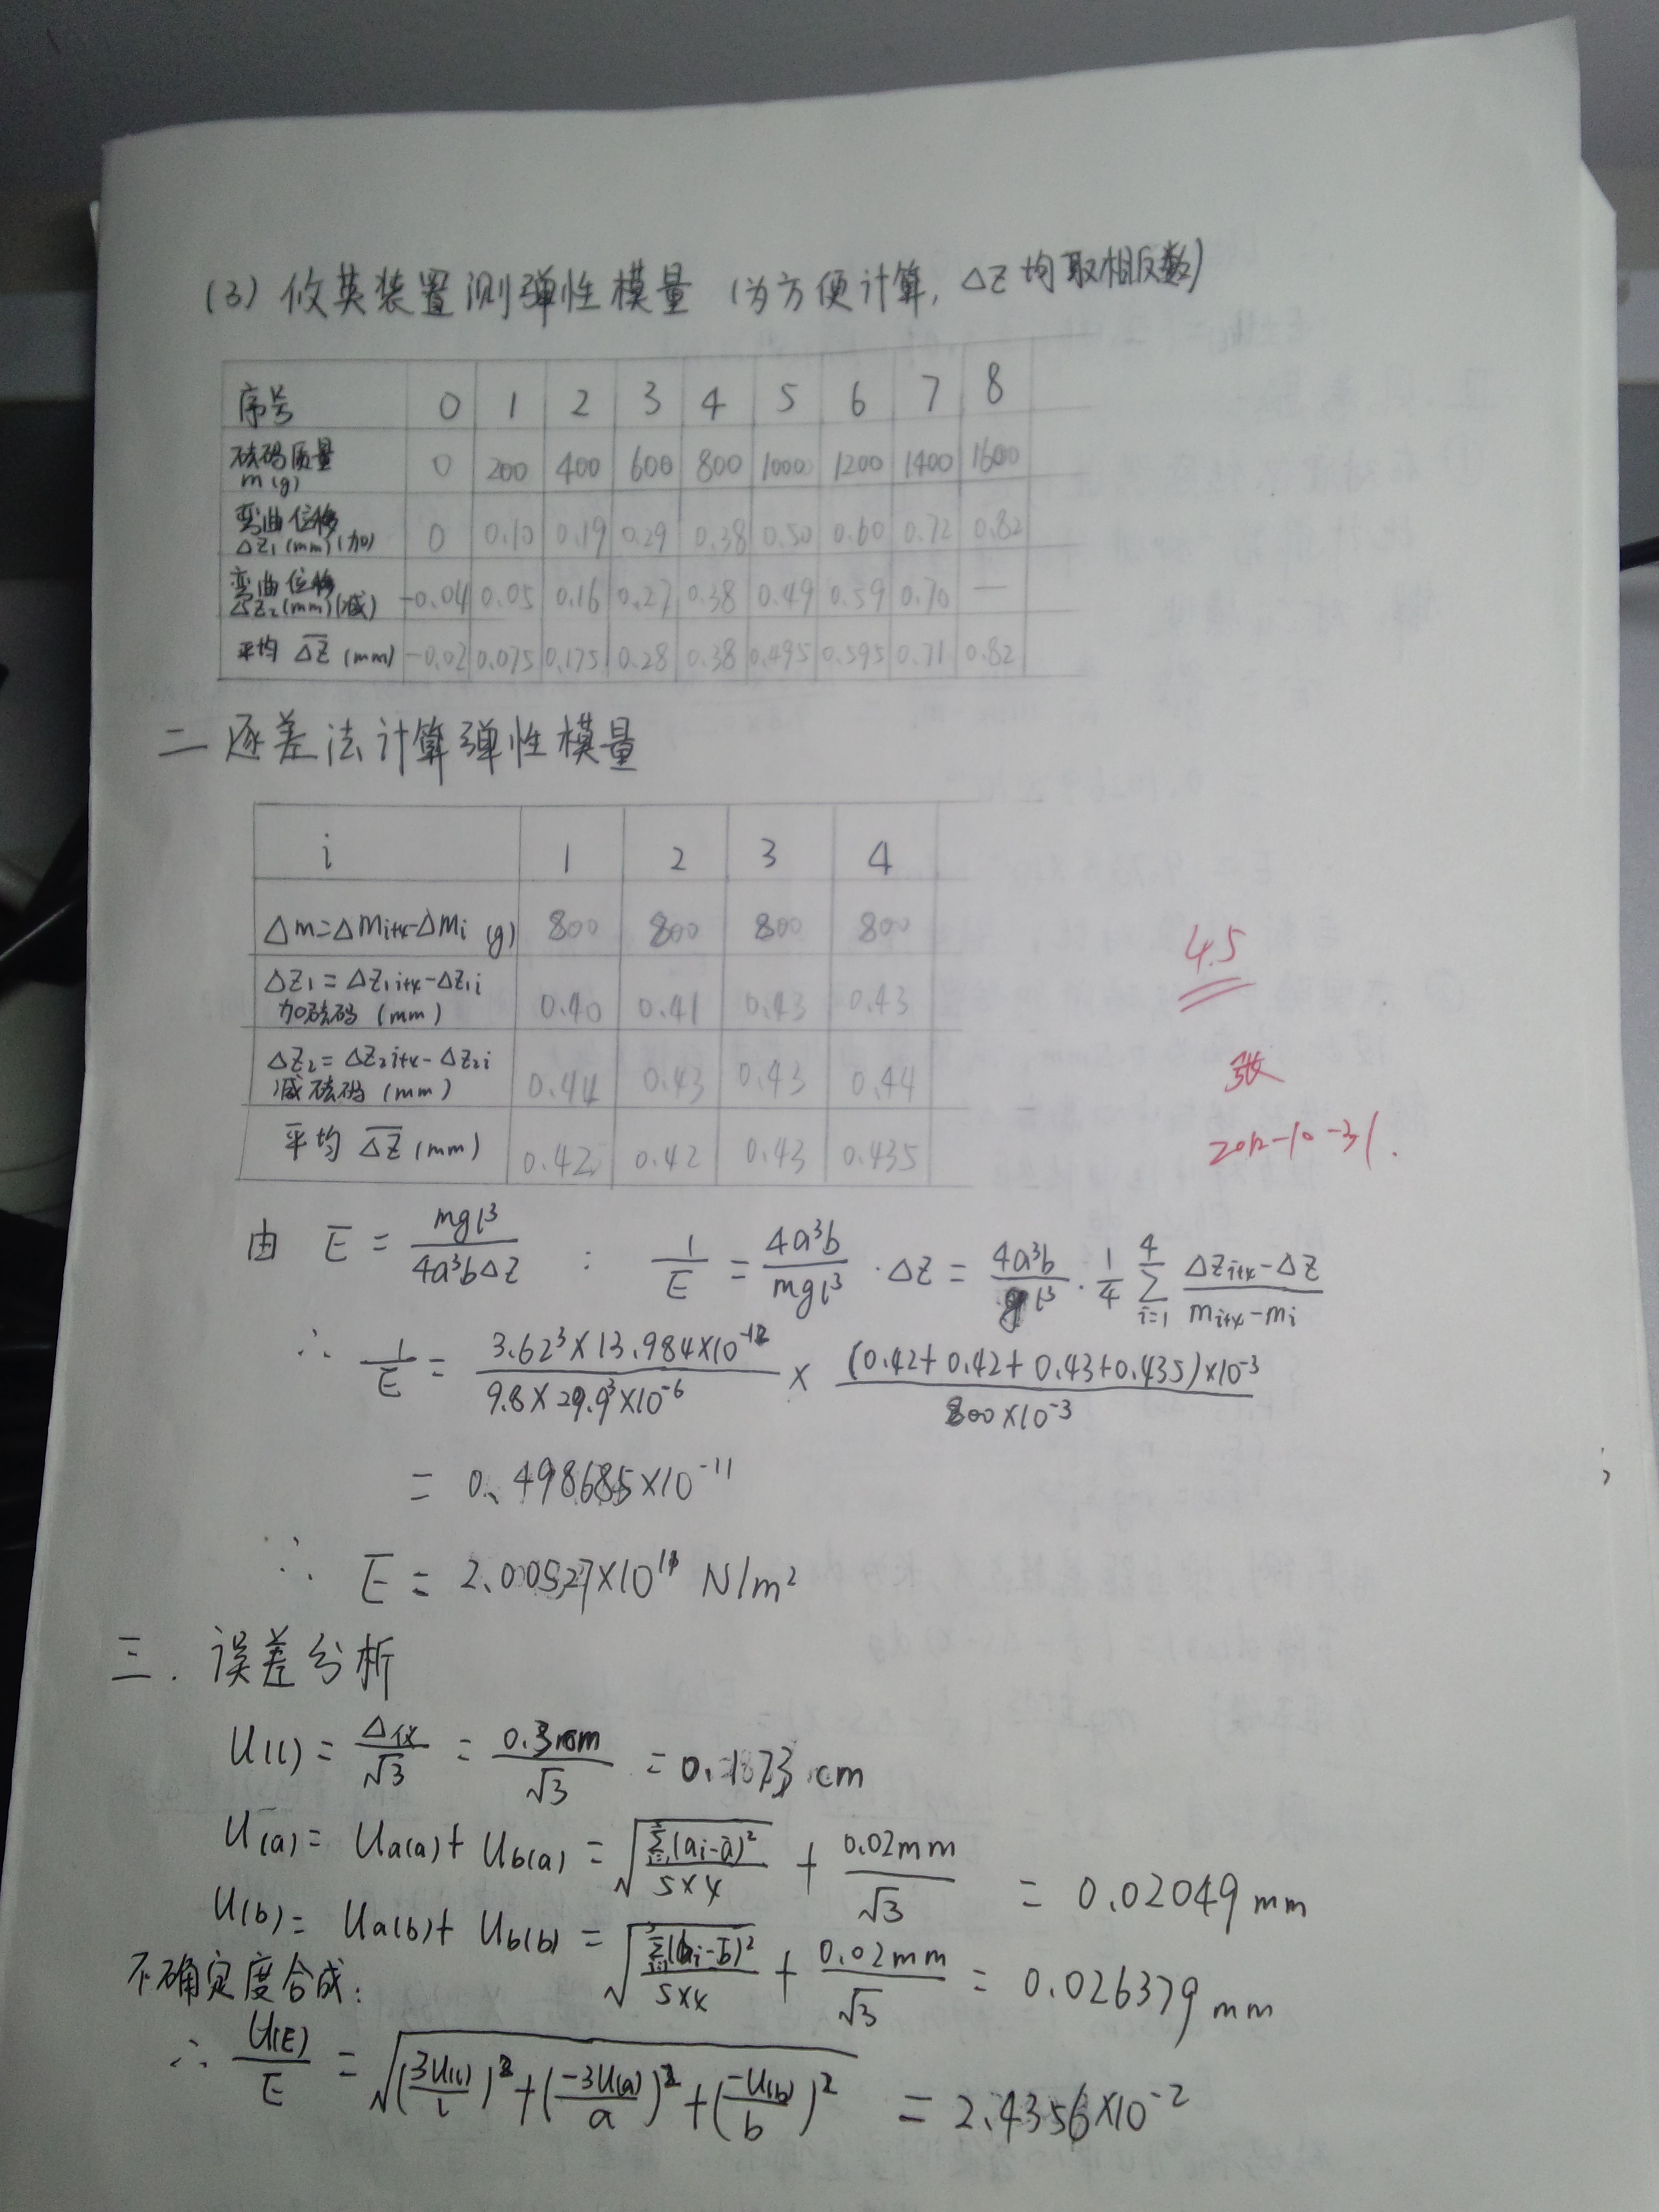 (3) 攸英装置测弹性模量 (为方便计算, ΔZ均取相反数)
序号 0 1 2 3 4 5 6 7 8
砝码质量 m(g) 0 200 400 600 800 1000 1200 1400 1600
弯曲位移 ΔZ₁(mm)(加) 0 0.10 0.19 0.29 0.38 0.50 0.60 0.72 0.82
弯曲位移 ΔZ₂(mm)(减) -0.04 0.05 0.16 0.27 0.38 0.49 0.59 0.70 —
平均 ΔZ̄ (mm) -0.02 0.075 0.175 0.28 0.38 0.495 0.595 0.71 0.82
二 逐差法计算弹性模量
i 1 2 3 4
Δm=Δm_{i+4}-Δm_i (g) 800 800 800 800
ΔZ₁=ΔZ_{1i+4}-ΔZ_{1i} 加砝码 (mm) 0.40 0.41 0.43 0.43
ΔZ₂=ΔZ_{2i+4}-ΔZ_{2i} 减砝码 (mm) 0.44 0.43 0.43 0.44
平均 ΔZ̄ (mm) 0.42 0.42 0.43 0.435
4.5
张
2012-10-31.
由 E = mgl³/4a³bΔZ : 1/E = 4a³b/mgl³ · ΔZ = 4a³b/gl³ · 1/4 Σ_{i=1}^{4} (ΔZ_{i+4}-ΔZ)/(m_{i+4}-m_i)
∴ 1/E = 3.62³×13.984×10⁻¹²/9.8×29.9³×10⁻⁶ × (0.42+0.42+0.43+0.435)×10⁻³/800×10⁻³
= 0.498685×10⁻¹¹
∴ E = 2.00527×10¹¹ N/m²
三. 误差分析
U(l) = Δ仪/√3 = 0.3cm/√3 = 0.1873 cm
U(a) = Ua(a)+Ub(a) = √(Σ(ai-ā)²/5×4) + 0.02mm/√3 = 0.02049 mm
U(b) = Ua(b)+Ub(b) = √(Σ(bi-b̄)²/5×4) + 0.02mm/√3 = 0.026379 mm
不确定度合成:
∴ U(E)/E = √((3U(l)/l)²+(-3U(a)/a)²+(-U(b)/b)²) = 2.4356×10⁻²